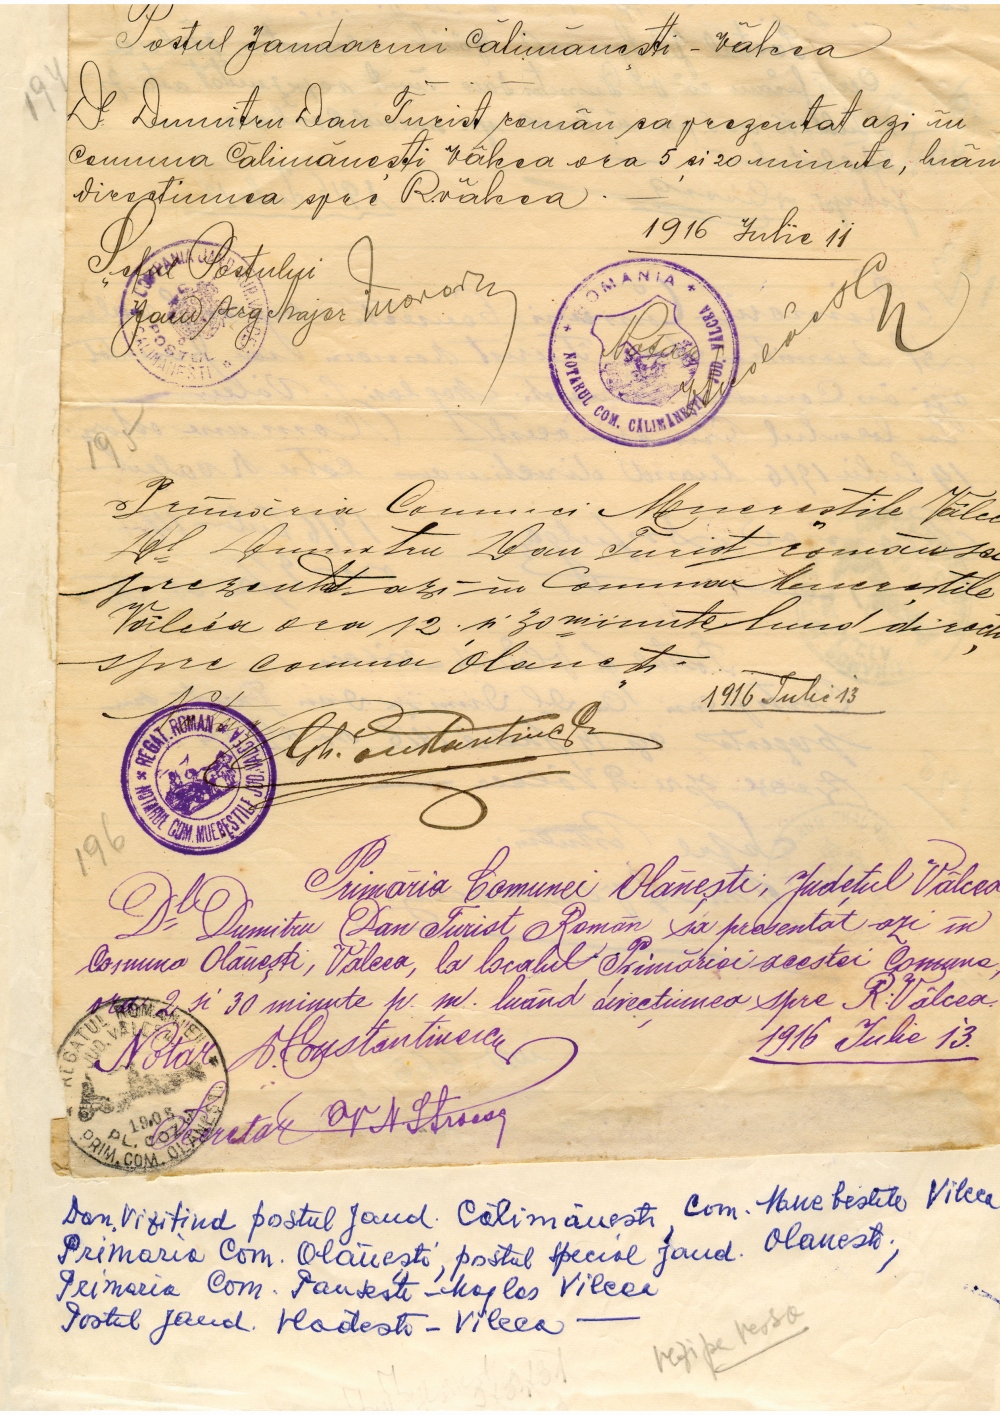 Postul Jandarmi Călimănești - Vâlcea
194
Dl. Dumitru Dan Turist român sa prezentat azi în
comuna Călimănești Vâlcea ora 5 și 20 minute, luân
direcțiunea spre R Vâlcea. —
1916 Iulie 11
Șeful Postului
Jand. Serg. Major
POSTUL
CĂLIMĂNEȘTI
ROMANIA
JUD. VÂLCEA
NOTARUL COM. CĂLIMĂNEȘTI
Notar
195
Primăria Comunei Muerestile Vâlcea
Dl. Dumitru Dan Turist român sa
prezentat azi în Comuna Muerestile
Vâlcea ora 12 și 30 minute luând direcți
spre comuna Olănești.
1916 Iulie 13
Not
Gh. Constantinescu
REGAT. ROMAN
JUD. VALCEA
NOTARUL COM. MUEBEȘTILE
196
Primăria Comunei Olănești, Județul Vâlcea
Dl. Dumitru Dan Turist Român sa presentat azi în
Comuna Olănești, Vâlcea, la localul Primăriei acestei Comune,
ora 2 și 30 minute p. m. luând direcțiunea spre R. Vâlcea.
1916 Iulie 13.
Notar D. Constantinescu
REGATUL ROMANIEI
JUD. VALCEA
1908
PL. COZIA
PRIM. COM. OLANESTI
Secretar
Dan, Vizitind postul Jand. Călimănesti, Com. Muebestile Vilcea
Primaria Com. Olănești, postul special Jand. Olanesti,
Primaria Com. Pausesti-Maglas Vilcea
Postul Jand. Vladesti - Vilcea —
vezi pe verso